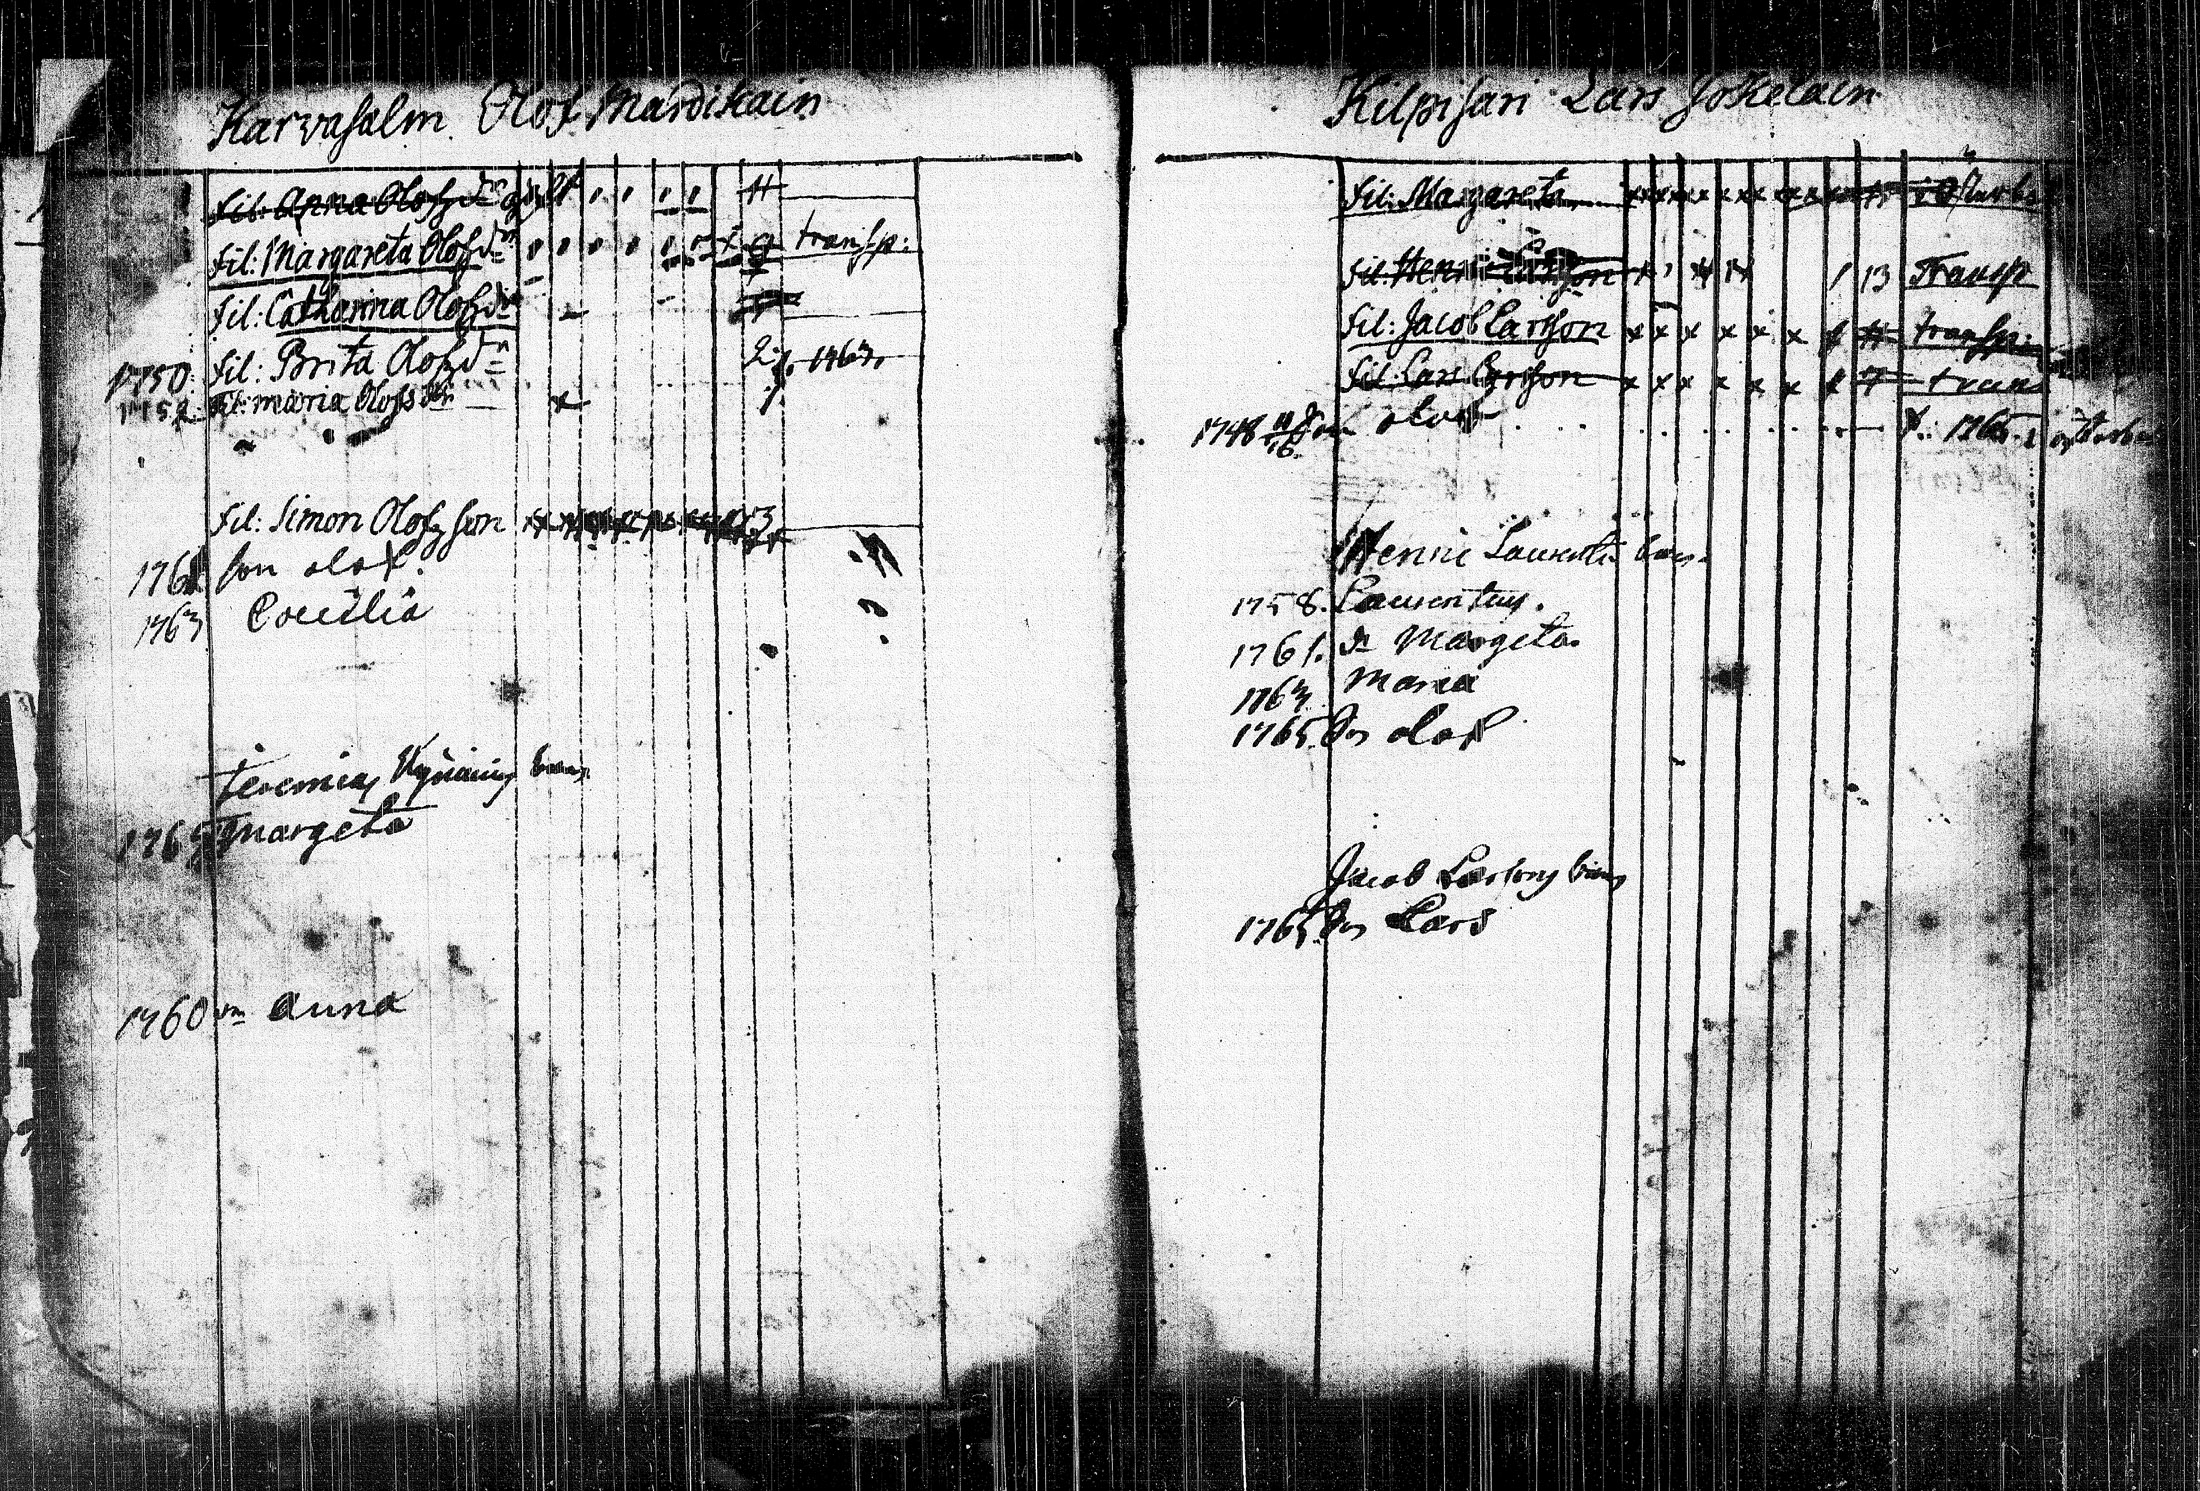 Karvasalm Olof Mardikain
Fil: Anna Olofzdr gift
Fil: Margareta Olofzdr transp:
Fil: Catharina Olofzdr
1750 Fil: Brita Olofzdr 2 1767
1752 Fil: maria Olofsdr
Fil: Simon Olofzson 3
176 son olof.
1763 Coecilia
Jeremias barn
1765 Margeta
1760 Anna
Kilpisari Lars Jokelain
Fil: Margareta
Fil: Henric Larsson 13 Transp
Fil: Jacob Larsson transp:
Fil: Lars Larsson 7 trans
1748 son olof 1765
Henric Laurentii barn
1758. Laurentius.
1761. dr Margeta
1763 Maria
1765. Son olof
Jacob Larsons barn
1765 Son Lars